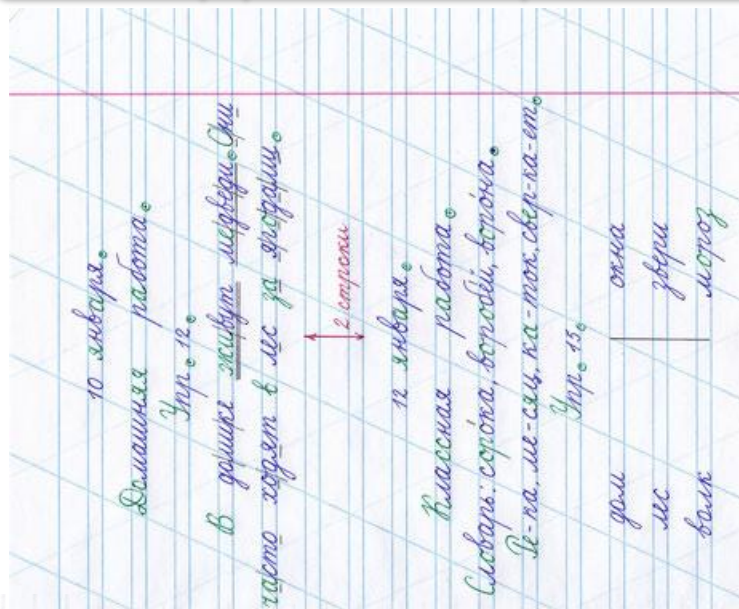 10 января.
Домашняя работа.
Упр. 12.
В домике живут медведи. Они
часто ходят в лес за ягодами.
2 строки
12 января.
Классная работа.
Словарь: сорока, воробей, ворона.
Ре-ка, ме-сяц, ка-ток, свер-ка-ет.
Упр. 15.
дом окна
лес звери
волк мороз